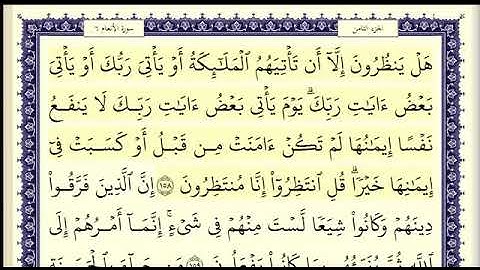 الجزء الثامن سورة الأنعام ٦
هَلْ يَنظُرُونَ إِلَّآ أَن تَأْتِيَهُمُ الْمَلَـٰٓئِكَةُ أَوْ يَأْتِىَ رَبُّكَ أَوْ يَأْتِىَ
بَعْضُ ءَايَـٰتِ رَبِّكَ ۗ يَوْمَ يَأْتِى بَعْضُ ءَايَـٰتِ رَبِّكَ لَا يَنفَعُ
نَفْسًا إِيمَـٰنُهَا لَمْ تَكُنْ ءَامَنَتْ مِن قَبْلُ أَوْ كَسَبَتْ فِىٓ
إِيمَـٰنِهَا خَيْرًا ۗ قُلِ انتَظِرُوٓا۟ إِنَّا مُنتَظِرُونَ ١٥٨ إِنَّ الَّذِينَ فَرَّقُوا۟
دِينَهُمْ وَكَانُوا۟ شِيَعًا لَّسْتَ مِنْهُمْ فِى شَىْءٍ ۚ إِنَّمَآ أَمْرُهُمْ إِلَى
اللَّهِ ثُمَّ يُنَبِّئُهُم بِمَا كَانُوا۟ يَفْعَلُونَ ١٥٩ مَن جَآءَ بِالْحَسَنَةِ